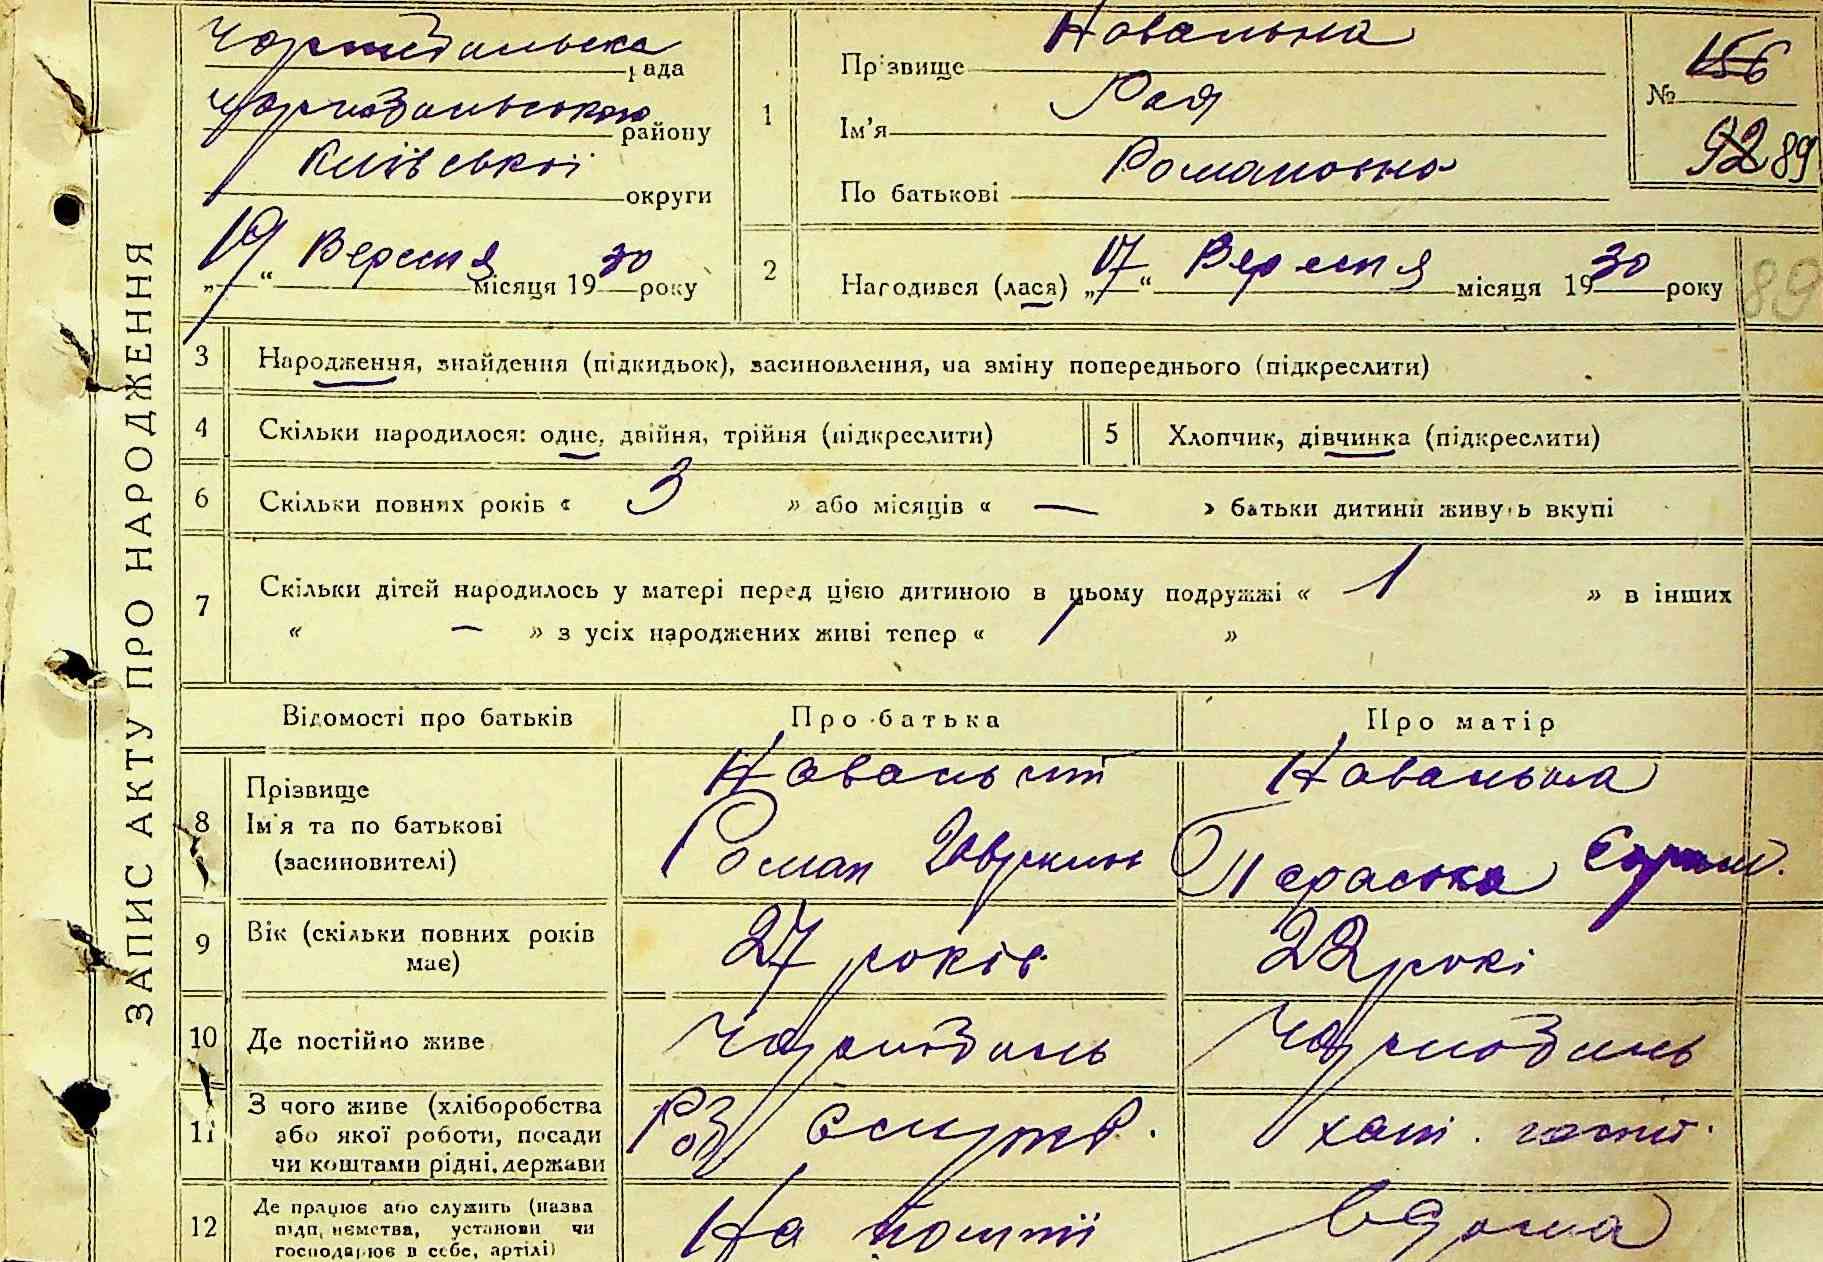 ЗАПИС АКТУ ПРО НАРОДЖЕННЯ
Чорнобильська рада
Чорнобильського району
Київської округи
„19“ Вересня місяця 1930 року
1
Прізвище Ковальна
Ім'я Рая
По батькові Романовна
№ 156
92 89
2
Народився (лася) „17“ Вересня місяця 1930 року
89
3 Народження, знайдення (підкидьок), засиновлення, на зміну попереднього (підкреслити)
4 Скільки народилося: одне, двійня, трійня (підкреслити)
5 Хлопчик, дівчинка (підкреслити)
6 Скільки повних років « 3 » або місяців « — » батьки дитини живуть вкупі
7 Скільки дітей народилось у матері перед цією дитиною в цьому подружжі « 1 » в інших
« — » з усіх народжених живі тепер « 1 »
Відомості про батьків
Про батька
Про матір
8
Прізвище
Ім'я та по батькові
(засиновителі)
Роман
Параска
9 Вік (скільки повних років
має)
27 років
22 рокі
10 Де постійно живе
Чорнобиль
Чорнобиль
11
З чого живе (хліборобства
або якої роботи, посади
чи коштами рідні, держави
хат. госп.
12
Де працює або служить (назва
підприємства, установи чи
господарює в себе, артілі)
На пошті
вдома